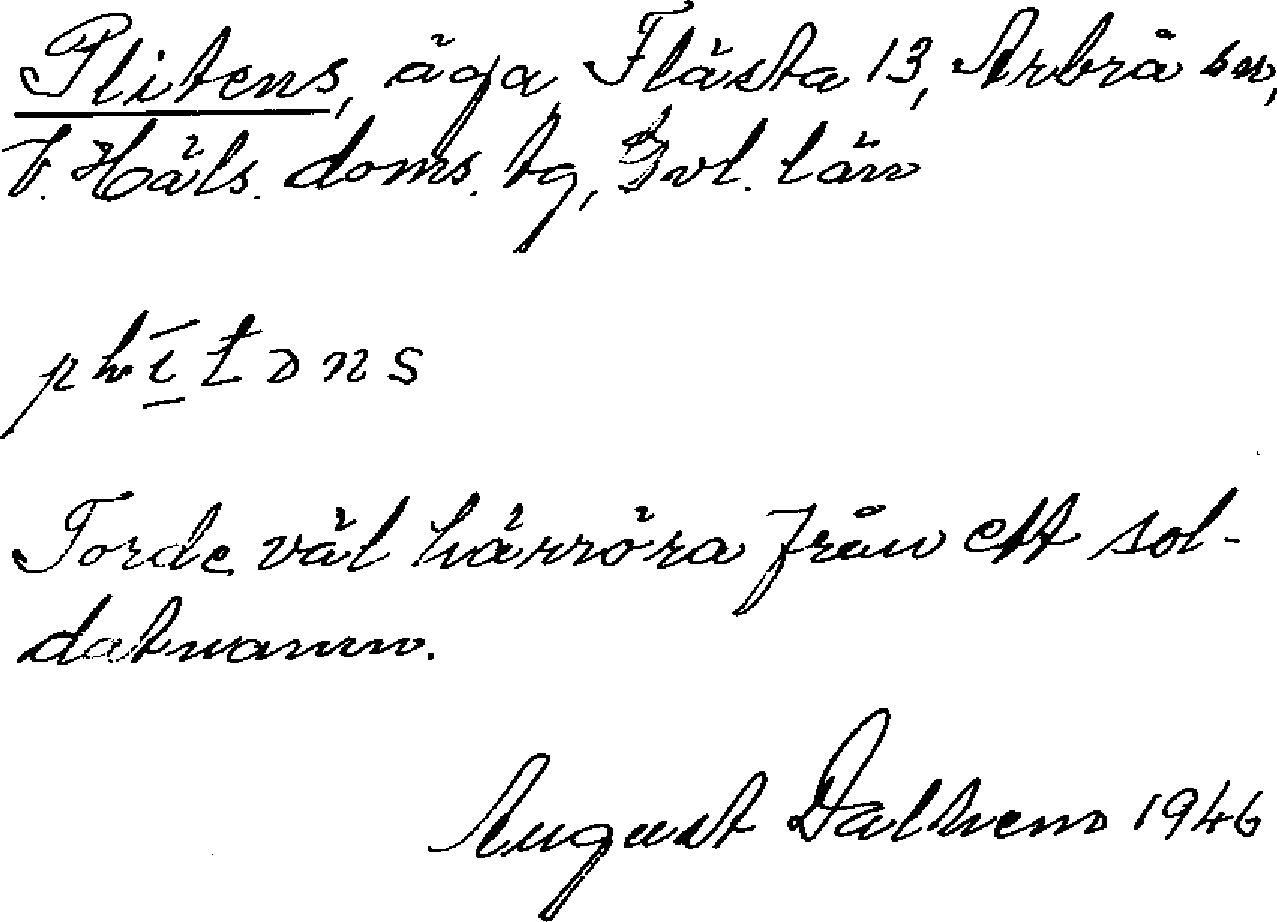 Plitens, äga, Flästa 13, Arbrå sn,
V. Häls. doms. tg, Gvl. län
Torde väl härröra från ett sol-
datnamn.
August Dalhem 1946